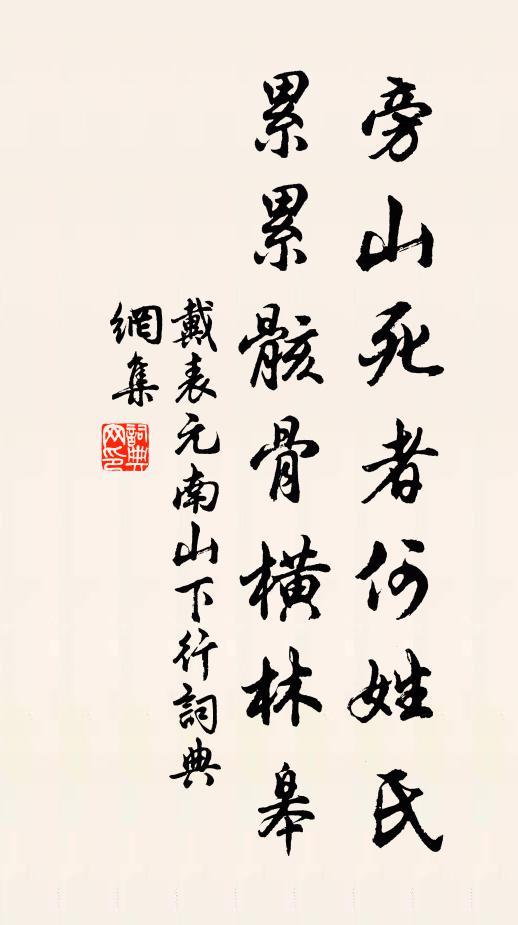 旁山死者何姓氏
累累骸骨橫林皋
戴表元南山下行詞典
網集
詞典網印